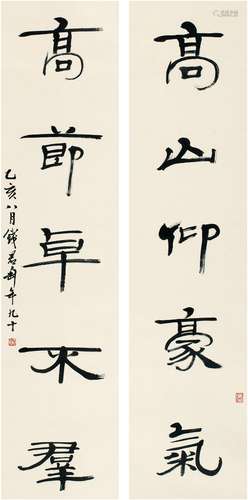 高山仰豪氣
高節卓不羣
乙亥八月錢君匋年九十